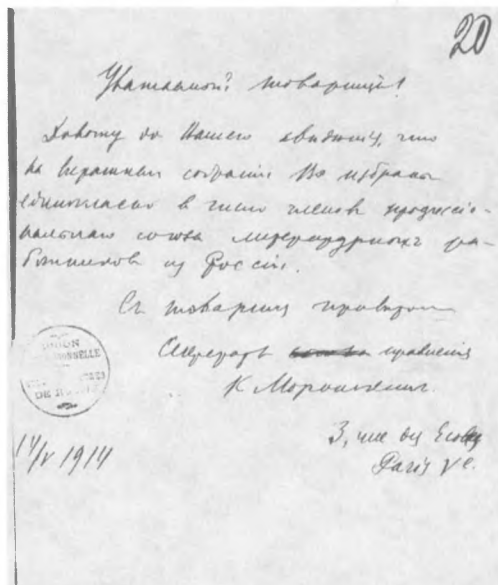 20
Уважаемый товарищ!
Довожу до Вашего сведения, что
на вчерашнем собрании Вы избраны
единогласно в число членов професcio-
нальнаго союза литературных ра-
ботников из Россіи.
Съ товарищ приветом
Секретарь правления
К
UNION
DE
14/V 1914
3, rue des Ecoles
Paris Ve.